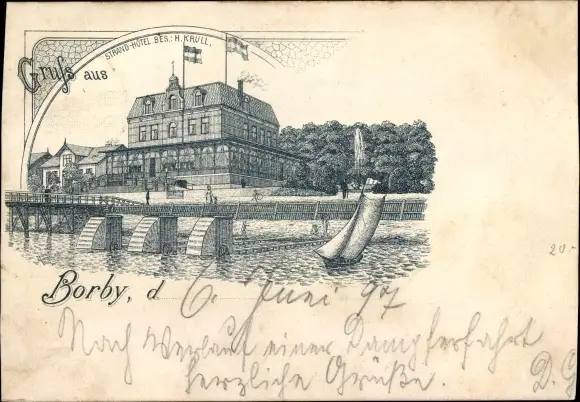 STRAND-HÔTEL BES.: H. KRULL.
Gruß aus
Borby, d 6. Juni 97
20.-
Nach Verlauf einer Dampferfahrt
herzliche Grüße.
D. G